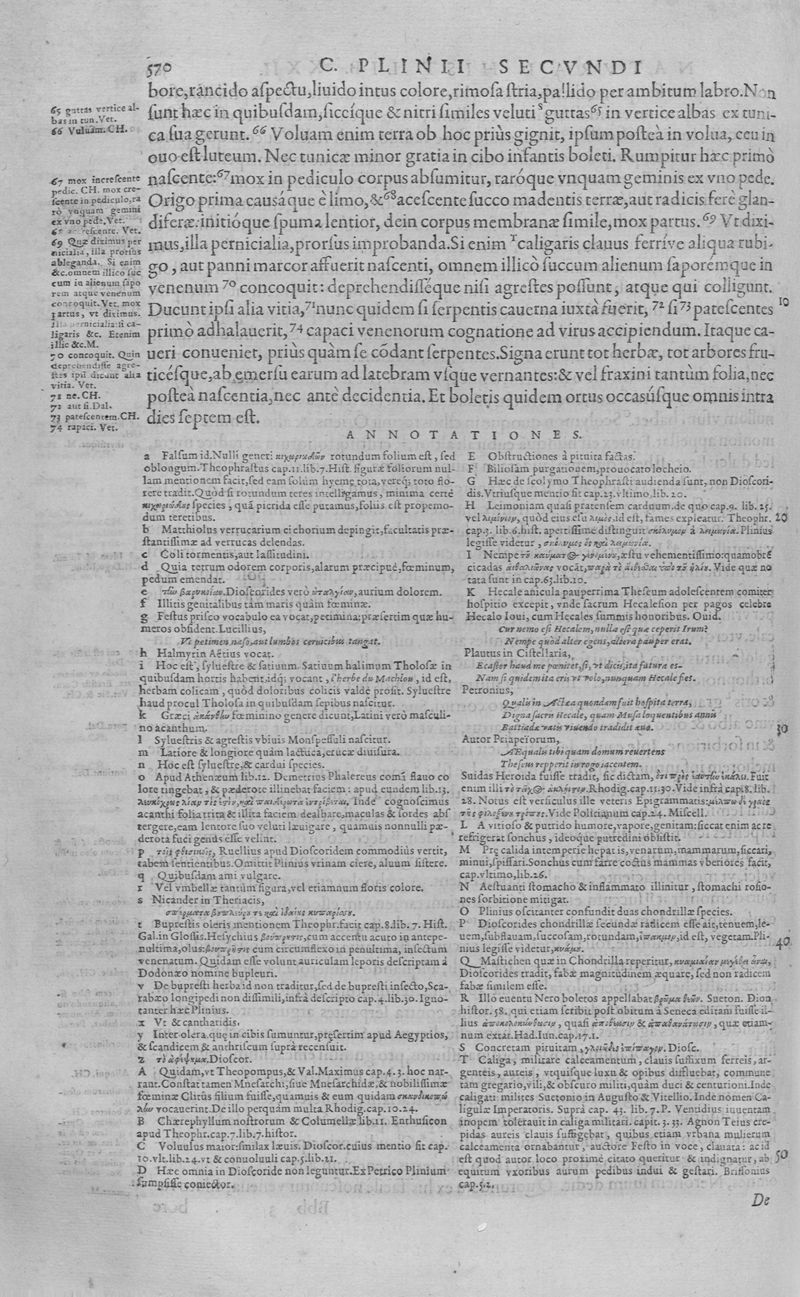 570
C. PLINII SECVNDI
bore,rancido aſpectu,liuido intus colore,rimoſa ſtria,pallido per ambitum labro.Non
ſunt hæc in quibuſdam,ſiccíque & nitri ſimiles veluti ˢguttas⁶⁵ in vertice albas ex tuni-
ca ſua gerunt. ⁶⁶ Voluam enim terra ob hoc priùs gignit, ipſum poſteà in volua, ceu in
ouo eſt luteum. Nec tunicæ minor gratia in cibo infantis boleti. Rumpitur hæc primò
naſcente:⁶⁷mox in pediculo corpus abſumitur, raróque vnquam geminis ex vno pede.
Origo prima causáque è limo,&⁶⁸aceſcente ſucco madentis terræ,aut radicis ferè glan-
diferæ:initióque ſpuma lentior, dein corpus membranæ ſimile,mox partus.⁶⁹ Vt dixi-
mus,illa pernicialia,prorſus improbanda.Si enim ᵀcaligaris clauus ferríve aliqua rubi-
go, aut panni marcor affuerit naſcenti, omnem illicò ſuccum alienum ſaporémque in
venenum ⁷⁰ concoquit: deprehendiſſéque niſi agreſtes poſſunt, atque qui colligunt.
Ducunt ipſi alia vitia,⁷¹nunc quidem ſi ſerpentis cauerna iuxtà fuerit, ⁷² ſi⁷³ pateſcentes
primò adhalauerit,⁷⁴ capaci venenorum cognatione ad virus accipiendum. Itaque ca-
ueri conueniet, priùs quàm ſe cõdant ſerpentes.Signa erunt tot herbæ, tot arbores fru-
ticéſque,ab emerſu earum ad latebram vſque vernantes:& vel fraxini tantùm folia,nec
poſteà naſcentia,nec antè decidentia. Et boletis quidem ortus occasúſque omnis intra
dies ſeptem eſt.
65 guttas vertice al-
bas in tun.Vet.
66 Vuluam.CH.
67 mox increſcente
pedic. CH. mox cre-
ſcente in pediculo,ra
rò vnquam gemini
ex vno pede.Vet.
69 Quæ diximus per
nicialia, illa prorſus
ableganda. Si enim
&c.omnem illico ſuc
cum in alienum ſapo
rem atque venenum
concoquit.Vet. mox
partus, vt diximus.
ligaris &c. Etenim
illic &c.M.
70 concoquit. Quin
deprehendiſſe agre-
ſtes ipſi dicunt alia
vitia. Vet.
71 ne.CH.
72 aut ſi.Dal.
73 pateſcentem.CH.
74 rapaci. Vet.
10
ANNOTATIONES.
a Falſum id.Nulli generi rotundum folium eſt, ſed
oblongum.Theophraſtus cap.11.lib.7.Hiſt. figuræ foliorum nul-
lam mentionem facit,ſed eam ſolùm hyeme tota,vereq; toto flo-
rere tradit.Quòd ſi rotundum teres intelligamus, minima certè
ſpecies, quã picrida eſſe putamus,foliis eſt propemo-
dum teretibus.
b Matthiolus verrucarium cichorium depingit,facultatis præ-
ſtantiſſimæ ad verrucas delendas.
c Coli tormentis,aut laſſitudini.
d Quia tetrum odorem corporis,alarum præcipuè,fœminum,
pedum emendat.
e Dioſcorides verò aurium dolorem.
f Illitis genitalibus tàm maris quàm fœminæ.
g Feſtus priſco vocabulo ea vocat,petimina:præſertim quæ hu-
meros obſident.Lucillius,
Vt petimen naſo,aut lumbos ceruicibus tangat.
h Halmyrin Aëtius vocat.
i Hoc eſt, ſylueſtre & ſatiuum. Satiuum halimum Tholoſæ in
quibuſdam hortis habent.idq; vocant, l'herbe du Machlou, id eſt,
herbam colicam, quòd doloribus colicis valdè proſit. Sylueſtre
haud procul Tholoſa in quibuſdam ſepibus naſcitur.
k Græci fœminino genere dicunt,Latini verò maſculi-
no acanthum.
l Sylueſtris & agreſtis vbiuis Monſpeſſuli naſcitur.
m Latiore & longiore quàm lactuca,erucæ diuiſura.
n Hoc eſt ſylueſtre,& cardui ſpecies.
o Apud Athenæum lib.12. Demetrius Phalereus comã flauo co
lore tingebat, & pæderote illinebat faciem: apud eundem lib.13.
Inde cognoſcimus
acanthi folia trita & illita faciem dealbare,maculas & ſordes abſ
tergere,eam lentore ſuo veluti læuigare, quamuis nonnulli pæ-
derota fuci genus eſſe velint.
p Ruellius apud Dioſcoridem commodiùs vertit,
tabem ſentientibus.Omittit Plinius vrinam ciere, aluum ſiſtere.
q Quibuſdam ami vulgare.
r Vel vmbellæ tantùm figura,vel etiamnum floris colore.
s Nicander in Theriacis,
t Bupreſtis oleris mentionem Theophr.facit cap.8.lib.7. Hiſt.
Gal.in Gloſſis.Heſychius cum accentu acuto in antepe-
nultima,olus: cum circumflexo in penultima, inſectum
venenatum. Quidam eſſe volunt auriculam leporis deſcriptam à
Dodonæo nomine bupleuri.
v De bupreſti herba id non traditur,ſed de bupreſti inſecto,Sca-
rabæo longipedi non diſſimili,infrà deſcripto cap.4.lib.30. Igno-
tanter hæc Plinius.
x Vt & cantharidis.
y Inter olera,quæ in cibis ſumuntur,præſertim apud Aegyptios,
& ſcandicem & anthriſcum ſuprà recenſuit.
z Dioſcor.
A Quidam,vt Theopompus,& Val.Maximus cap.4.3. hoc nar-
rant.Conſtat tamen Mneſarchi,ſiue Mneſarchidæ,& nobiliſſimæ
fœminæ Clitûs filium fuiſſe,quamuis & eum quidam
vocauerint.De illo perquàm multa Rhodig.cap.10.24.
B Chærephyllum noſtrorum & Columellæ lib.11. Enthuſicon
apud Theophr.cap.7.lib.7.hiſtor.
C Voluulus maior:ſmilax læuis. Dioſcor.cuius mentio fit cap.
10.vlt.lib.24.vt & conuoluuli cap.5.lib.21.
D Hæc omnia in Dioſcoride non leguntur.Ex Petrico Plinium
ſumpſiſſe coniector.
E Obſtructiones à pituita factas.
F Bilioſam purgationem,prouocato locheio.
G Hæc de ſcolymo Theophraſti audienda ſunt, non Dioſcori-
dis.Vtriuſque mentio fit cap.23.vltimo.lib.20.
H Leimoniam quaſi pratenſem carduum.de quo cap.9. lib. 25.
vel quòd eius eſu id eſt, fames expleatur. Theophr.
cap.3. lib.6.hiſt. apertiſſimè diſtinguit à Plinius
legiſſe videtur,
I Nempe æſtu vehementiſſimo:quamobrẽ
cicadas vocāt, Vide quæ no
tata ſunt in cap.65.lib.10.
K Hecale anicula pauperrima Theſeum adoleſcentem comiter
hoſpitio excepit, vnde ſacrum Hecaleſion per pagos celebre
Hecalo Ioui, cum Hecales ſummis honoribus. Ouid.
Cur nemo eſt Hecalem,nulla eſt quæ ceperit Irum?
Nempe quòd alter egens,altera pauper erat.
Plautus in Ciſtellaria,
Ecaſtor haud me pœnitet,ſi, vt dicis,ita futura es-
Nam ſi quidem ita eris vt volo,nunquam Hecale fies.
Petronius,
Qualis in Actæa quondam fuit hoſpita terra,
Digna ſacris Hecale, quam Muſa loquentibus annis
Battiadæ vatis viuendo tradidit æuo.
Autor Priapeiorum,
Æqualis tibi quam domum reuertens
Theſeus repperit in rogo iacentem.
Suidas Heroida fuiſſe tradit, ſic dictam, Fuit
enim illi Rhodig.cap.11.30.Vide infrà cap.8.lib.
28. Notus eſt verſiculus ille veteris Epigrammatis:
Vide Politianum cap.24. Miſcell.
L A vitioſo & putrido humore,vapore,genitam:ſiccat enim ac re
refrigerat ſonchus, ideoque putredini obſiſtit.
M Præ calida intemperie hepatis,venarum,mammarum,ſiccari,
minui,ſpiſſari.Sonchus cum farre coctus mammas vberiores facit,
cap.vltimo,lib.26.
N Aeſtuanti ſtomacho & inflammato illinitur, ſtomachi roſio-
nes ſorbitione mitigat.
O Plinius oſcitanter confundit duas chondrillæ ſpecies.
P Dioſcorides chondrillæ ſecundæ radicem eſſe ait,tenuem,le-
uem,ſubflauam,ſuccoſam,rotundam, id eſt, vegetam.Pli-
nius legiſſe videtur,
Q Maſtichen quæ in Chondrilla reperitur,
Dioſcorides tradit, fabæ magnitudinem æquare, ſed non radicem
fabæ ſimilem eſſe.
R Illo euentu Nero boletos appellabat Sueton. Dion
hiſtor. 58. qui etiam ſcribit poſt obitum à Seneca editam fuiſſe il-
lius quaſi & quæ etiam-
num extat.Had.Iun.cap.17.1.
S Concretam pituitam, Dioſc.
T Caliga, militare calceamentum, clauis ſuffixum ferreis, ar-
genteis, aureis, vt quiſque luxu & opibus diffluebat, commune
tam gregario,vili,& obſcuro militi,quàm duci & centurioni.Inde
caligati milites Suetonio in Auguſto & Vitellio. Inde nomen Ca-
ligulæ Imperatoris. Suprà cap. 43. lib. 7. P. Ventidius iuuentam
inopem tolerauit in caliga militari. capit. 3. 33. Agnon Teius cre-
pidas aureis clauis ſuffigebat, quibus etiam vrbana mulierum
calceamenta ornabantur, auctore Feſto in voce, clauata: ac id
eſt quod autor loco proximè citato queritur & indignatur, ab
equitum vxoribus aurum pedibus indui & geſtari. Briſſonius
cap.5.2.
20
30
40
50
De